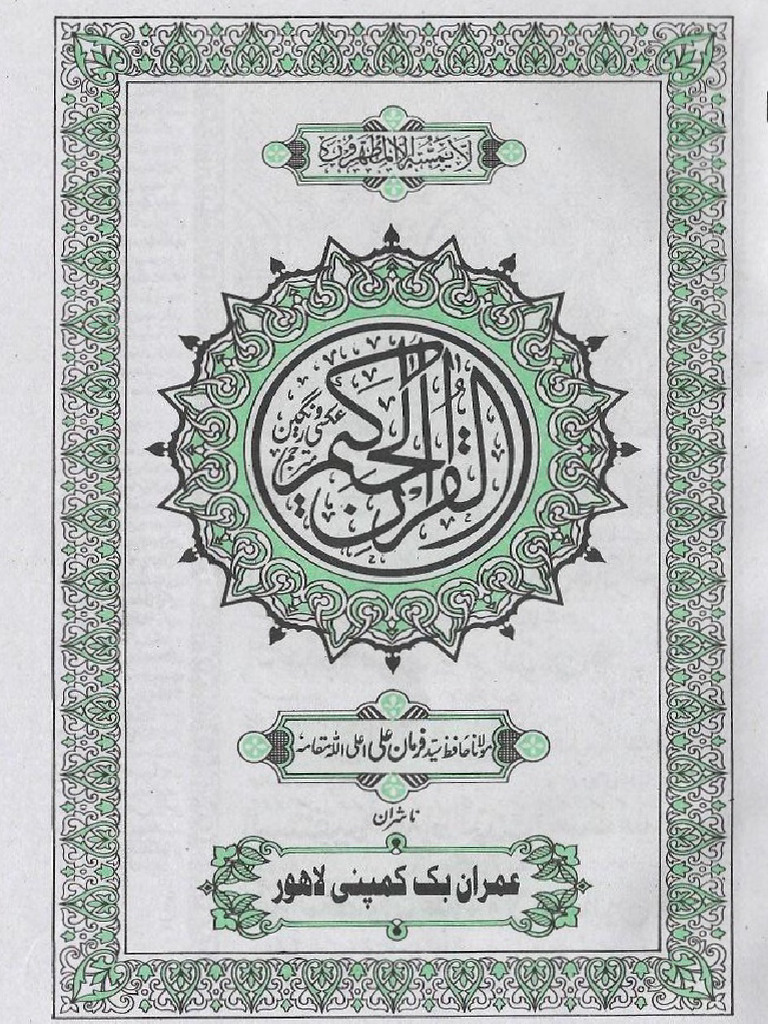 لَا يَمَسُّهٗ اِلَّا الْمُطَهَّرُوْنَ
القرآن الحكيم
عکسی و رنگین
مترجم
مولانا حافظ سیّد فرمان علی اعلی اللہ مقامہٗ
ناشران
عمران بک کمپنی لاہور